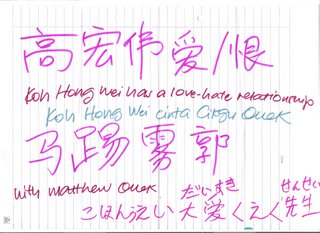 高宏伟爱/恨
Koh Hong Wei has a love-hate relationship
Koh Hong Wei cinta Cikgu Quek
马踢雾郭
with Matthew Quek
だいすき せんせい
こほんうぇい大爱くえく先生